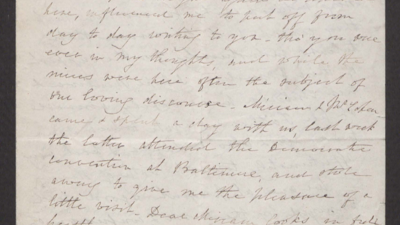 here, influenced me to put off from
day to day writing to you - tho' you were
ever in my thoughts, and while the
nieces were here often the subject of
our loving discourse - Miriam &
came & spent a day with us, last week
the latter attended the Democratic
convention at Baltimore, and stole
away to give me the pleasure of a
little visit - Dear Miriam looks in full
health